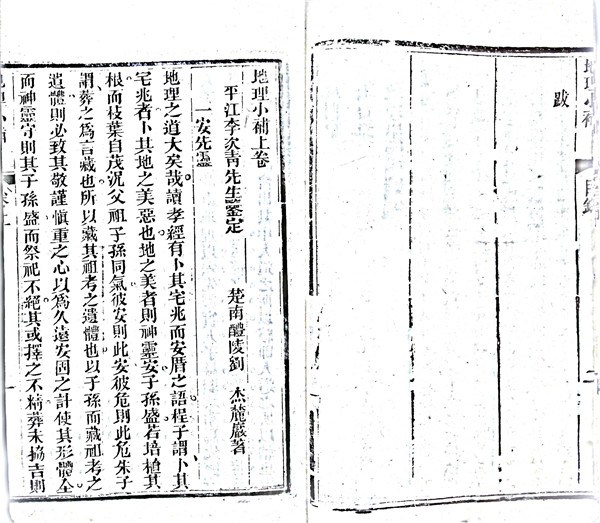 地理小補
目錄
跋
地理小補上卷
平江李次青先生鑒定
楚南醴陵劉 杰麓巖著
一安先靈
地理之道大矣哉讀孝經有卜其宅兆而安厝之語程子謂卜其
宅兆者卜其地之美惡也地之美者則神靈安子孫盛若培植其
根而枝葉自茂況父祖子孫同氣彼安則此安彼危則此危朱子
謂葬之為言藏也所以藏其祖考之遺體也以子孫而藏祖考之
遺體則必致其敬謹慎重之心以為久遠安固之計使其形體全
而神靈守則其子孫盛而祭祀不絕其或擇之不精葬未協吉則